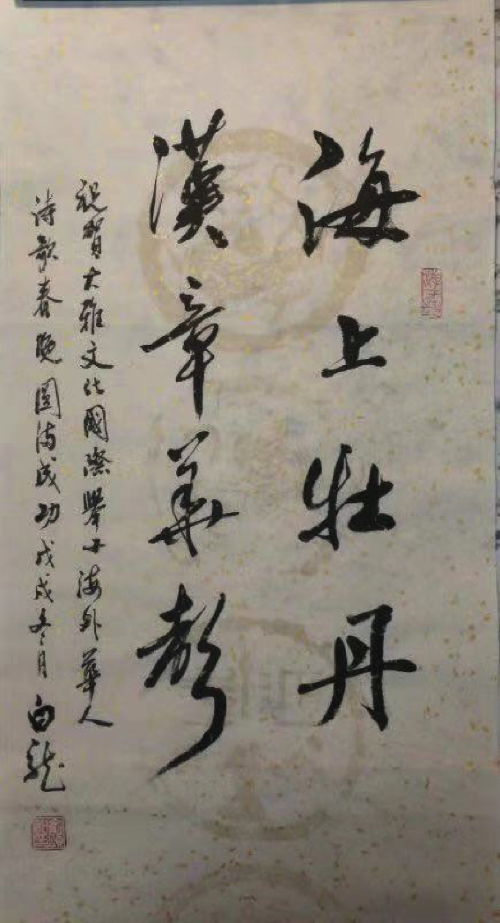 海上牡丹
漢章華聲
祝賀大雅文化國際舉办海外華人
诗歌春晚圆满成功戊戌冬月白龙